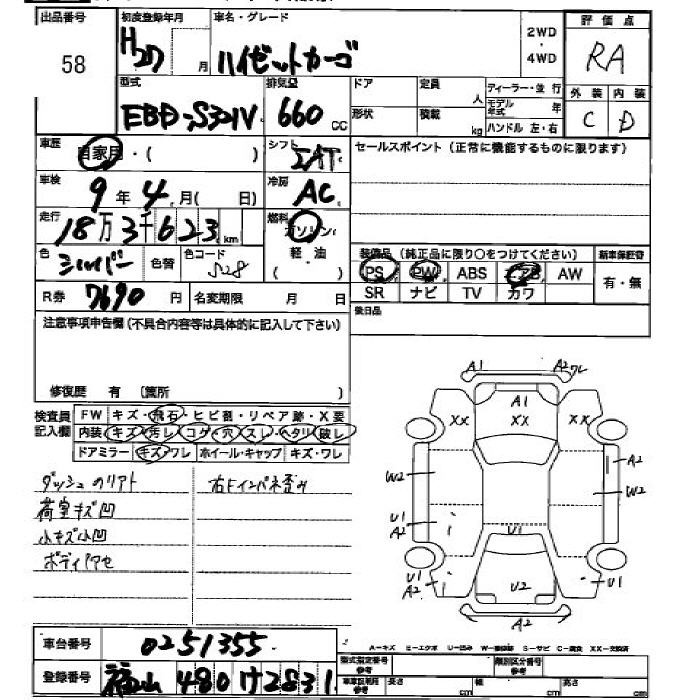 出品番号 初度登録年月 車名・グレード 2WD・4WD 評価点
58 H27 月 ハイゼットカーゴ RA
型式 排気量 ドア 定員 人 ディーラー・並行 外装 内装
EBD-S321V 660 cc 形状 積載 kg モデル年式 年 ハンドル 左・右 C D
車歴 自家用・( ) シフト IAT セールスポイント(正常に機能するものに限ります)
車検 9年4月( 日) 冷房 AC
走行 18万3千623km 燃料 ガソリン・軽油
色 シルバー 色替 色コード S28
装備品(純正品に限り○をつけてください) 新車保証書
PS PW ABS エアB AW 有・無
SR ナビ TV カワ
R券 7690円 名変期限 月 日
後日品
注意事項申告欄(不具合内容等は具体的に記入して下さい)
修復歴 有 〔箇所 〕
検査員記入欄 FW キズ・飛石・ヒビ割・リペア跡・X要
内装 キズ・汚レ・コゲ・穴・スレ・ヘタリ・破レ
ドアミラー キズ・ワレ ホイール・キャップ キズ・ワレ
ダッシュのリアト 右Fインパネ歪み
荷室キズ凹
小キズ小凹
ボディアセ
A1 A2ワレ
A1
XX XX XX
A2
W2 W2
U1 A2 U1
U1 A2 U2 U1
A2
A-キズ E-エクボ U-凹み W-補修跡 S-サビ C-腐食 XX-交換済
車台番号 0251355
型式指定番号 参考 類別区分番号 参考
登録番号 福山 480 け 2831
車車証明用 参考 長さ cm 幅 cm 高さ cm